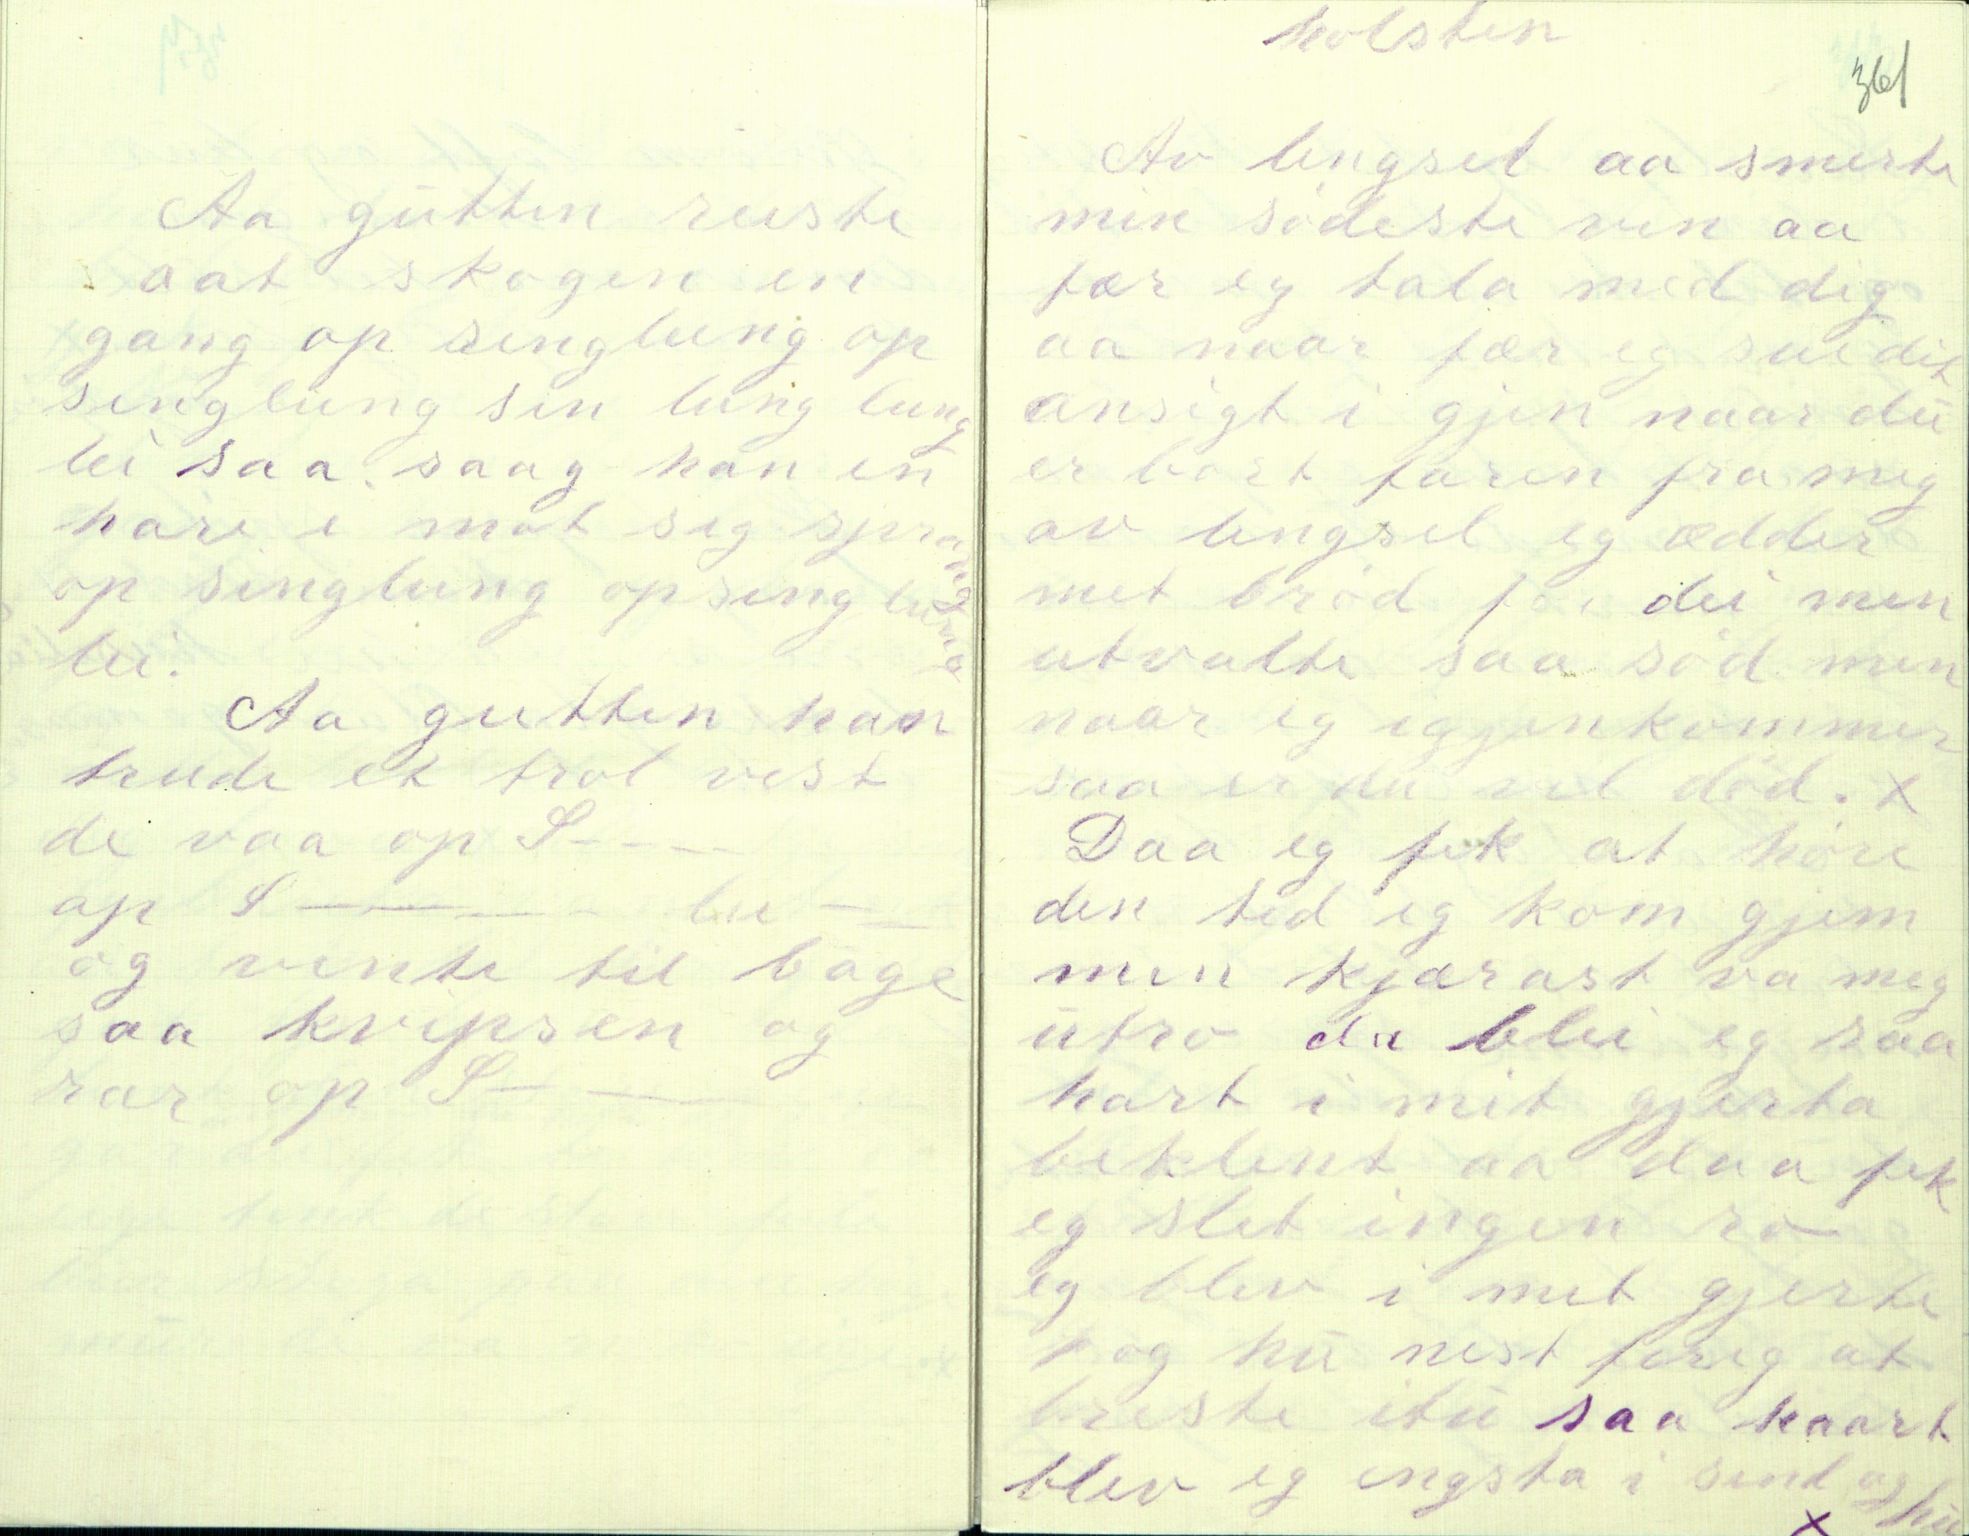 Aa gūtten reiste
aat skogen en
gang op singlung op
singlung sin lung lung
lei saa saag han en
hare i mot sig sprang
op singlung opsing lung
lei.
Aa gutten han
trude et trol vest
de vaa op S - - -
op S — — - lei — —
og vente til bage
saa kvipsen og
rar op S — —
holsten
361
Av lengsel aa smerte
min södeste ven aa
fær eg tala med dig
aa naar fær eg sui dit
ansigt i gjen naar dū
er bort faren fra mig
av lengsel eg ædder
met bröd for dei men
utvalte saa söd men
naar eg igjenkommer
saa er du vel död. x
Daa eg fek at höre
den tid eg kom gjem
min kjærast va meg
ūtro da blei eg saa
hart i mit gjerta
beklent aa daa fek
eg slet ingen ro
eg blev i met gjerte
og hū nest færig at
breste itū saa haart
blev eg engsta i sind og hū
x